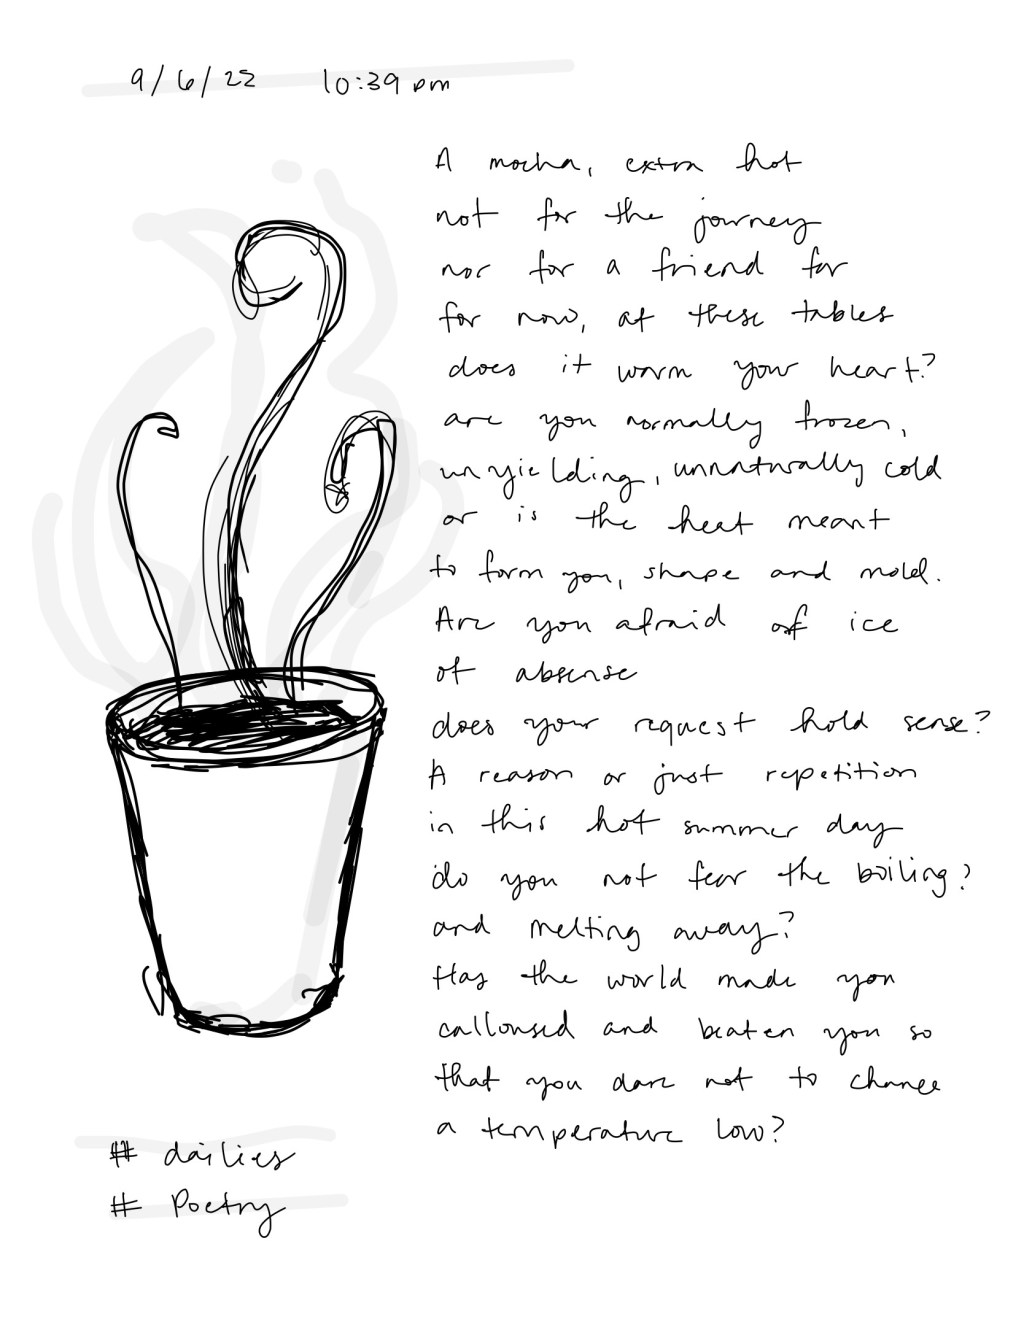 9/6/22 10:39 pm
A mocha, extra hot
not for the journey
nor for a friend for
for now, at these tables
does it warm your heart?
are you normally frozen,
unyielding, unnaturally cold
or is the heat meant
to form you, shape and mold.
Are you afraid of ice
of absense
does your request hold sense?
A reason or just repetition
in this hot summer day
do you not fear the boiling?
and melting away?
Has the world made you
calloused and beaten you so
that you dare not to chance
a temperature low?
# dailies
# Poetry